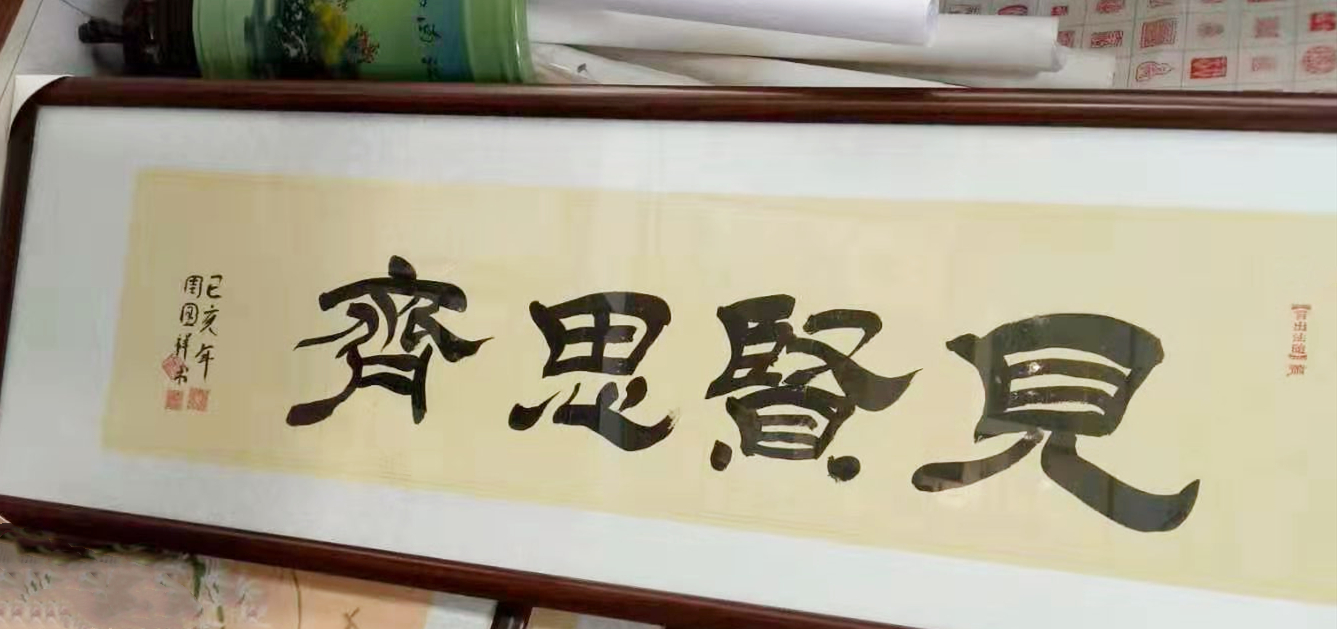 見賢思齊
己亥年
周國祥書